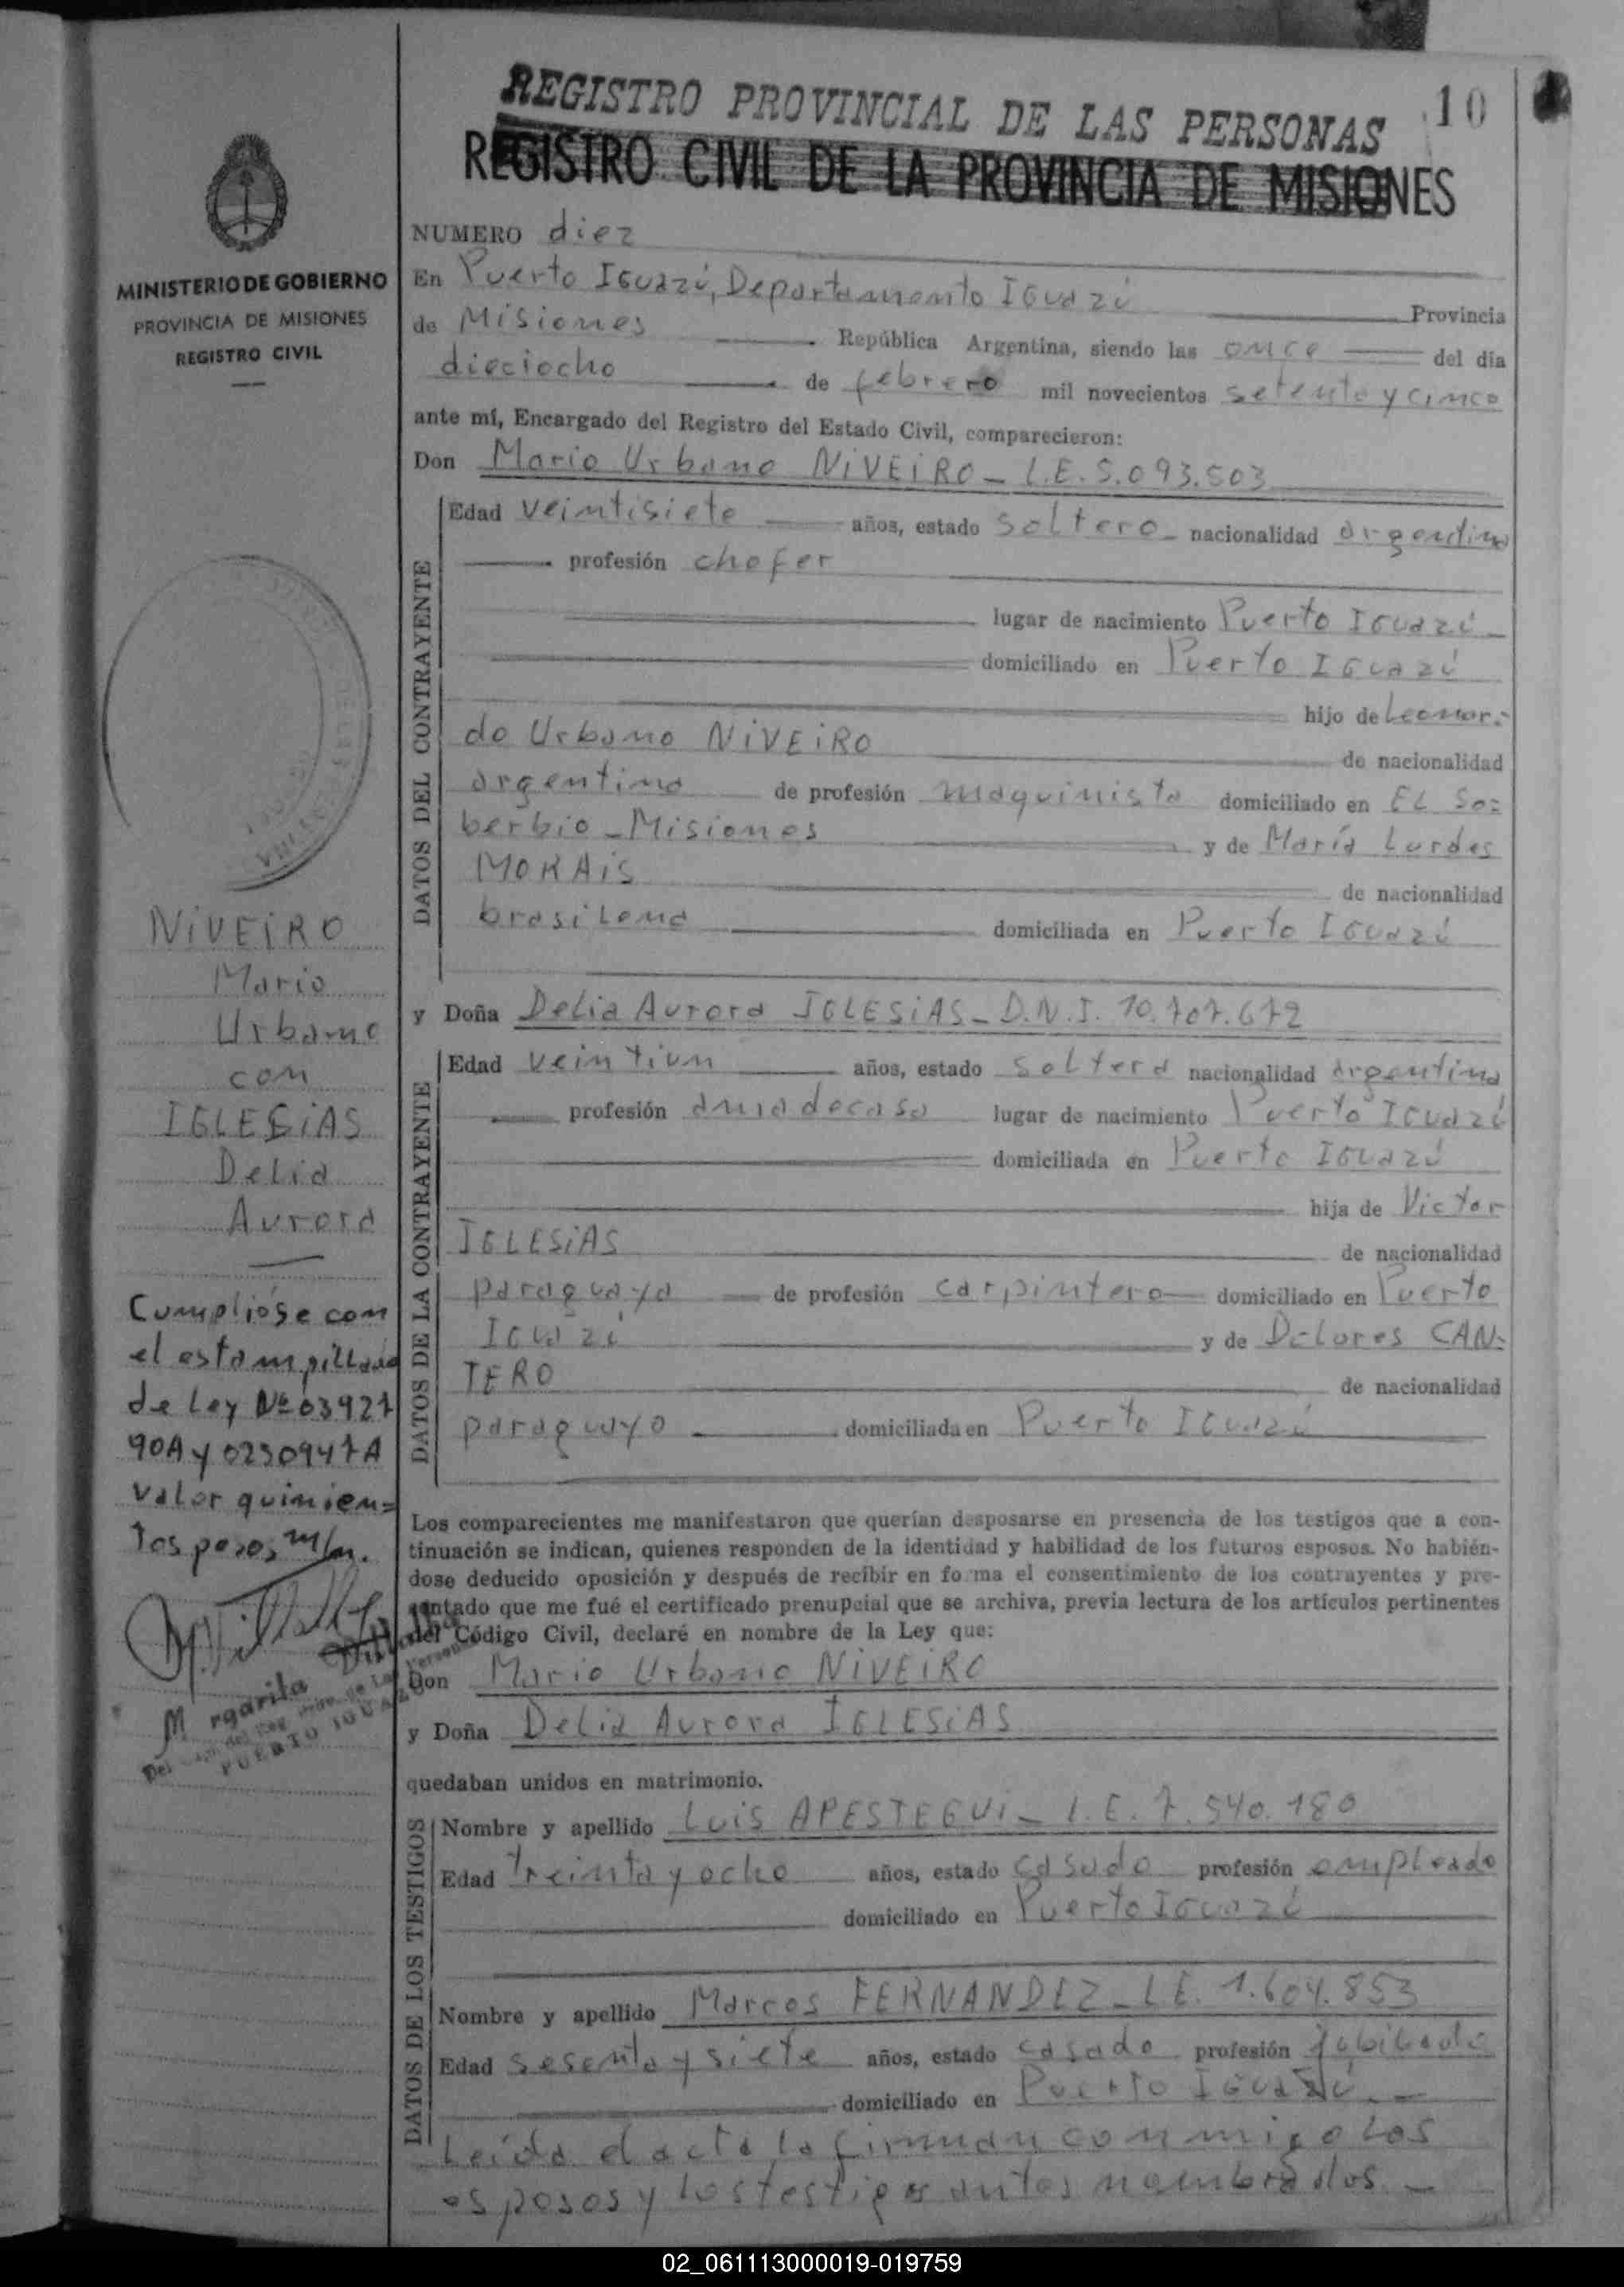 REGISTRO PROVINCIAL DE LAS PERSONAS
10
REGISTRO CIVIL DE LA PROVINCIA DE MISIONES
MINISTERIO DE GOBIERNO
PROVINCIA DE MISIONES
REGISTRO CIVIL
NUMERO diez
En Puerto Iguazú, Departamento Iguazú Provincia
de Misiones República Argentina, siendo las once del día
dieciocho de febrero mil novecientos setenta y cinco
ante mí, Encargado del Registro del Estado Civil, comparecieron:
Don Mario Urbano NIVEIRO - L.E. 5.093.503
DATOS DEL CONTRAYENTE
Edad veintisiete años, estado soltero - nacionalidad argentina
profesión chofer
lugar de nacimiento Puerto Iguazú -
domiciliado en Puerto Iguazú
hijo de Leonar=
do Urbano NIVEIRO de nacionalidad
argentina de profesión maquinista domiciliado en El So=
berbio - Misiones y de María Lurdes
MORAIS de nacionalidad
brasilena domiciliada en Puerto Iguazú
y Doña Delia Aurora IGLESIAS - D.N.I. 10.707.672
DATOS DE LA CONTRAYENTE
Edad veintiun años, estado soltera nacionalidad argentina
profesión ama de casa lugar de nacimiento Puerto Iguazú
domiciliada en Puerto Iguazú
hija de Victor
IGLESIAS de nacionalidad
paraguaya de profesión carpintero domiciliado en Puerto
Iguazú y de Dolores CAN=
TERO de nacionalidad
paraguayo domiciliada en Puerto Iguazú
Los comparecientes me manifestaron que querían desposarse en presencia de los testigos que a con-
tinuación se indican, quienes responden de la identidad y habilidad de los futuros esposos. No habién-
dose deducido oposición y después de recibir en forma el consentimiento de los contrayentes y pre-
sentado que me fué el certificado prenupcial que se archiva, previa lectura de los artículos pertinentes
del Código Civil, declaré en nombre de la Ley que:
Don Mario Urbano NIVEIRO
y Doña Delia Aurora IGLESIAS
quedaban unidos en matrimonio.
DATOS DE LOS TESTIGOS
Nombre y apellido Luis APESTEGUI - L.E. 7.540.180
Edad treinta y ocho años, estado casado profesión empleado
domiciliado en Puerto Iguazú
Nombre y apellido Marcos FERNANDEZ - L.E. 1.604.853
Edad sesenta y siete años, estado casado profesión jubilado
domiciliado en Puerto Iguazú -
Leída el acta la firman conmigo los
esposos y los testigos antes nombrados. -
NIVEIRO
Mario
Urbano
con
IGLESIAS
Delia
Aurora
Cumplióse con
el estampillado
de Ley Nº 03927
90A y 0230947A
valor quinien=
tos pesos m/n.
M rgarita
PUERTO IGUAZU
02_061113000019-019759